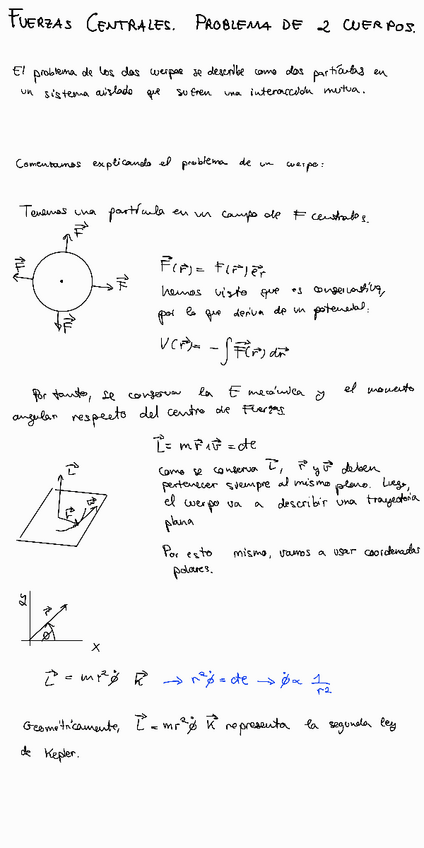 FUERZAS CENTRALES. PROBLEMA DE 2 CUERPOS.
El problema de los dos cuerpos se describe como dos partículas en
un sistema aislado que sufren una interacción mutua.
Comentamos explicando el problema de un cuerpo:
Tenemos una partícula en un campo de F centrales.
F⃗
F⃗
F⃗
F⃗
F⃗(r⃗) = F(r⃗) e⃗r
hemos visto que es conservativa,
por lo que deriva de un potencial:
V(r⃗) = - ∫ F⃗(r⃗) dr⃗
Por tanto, se conserva la E mecánica y el momento
angular respecto del centro de Fuerzas
L⃗ = m r⃗ ∧ v⃗ = cte
Como se conserva L⃗, r⃗ y v⃗ deben
pertenecer siempre al mismo plano. Luego,
el cuerpo va a describir una trayectoria
plana
L⃗
r⃗
v⃗
Por esto mismo, vamos a usar coordenadas
polares.
y
r⃗
ϕ
x
L⃗ = m r² ϕ̇ k⃗ → r² ϕ̇ = cte → ϕ̇ ∝ 1/r²
Geométricamente, L⃗ = m r² ϕ̇ k⃗ representa la segunda ley
de Kepler.